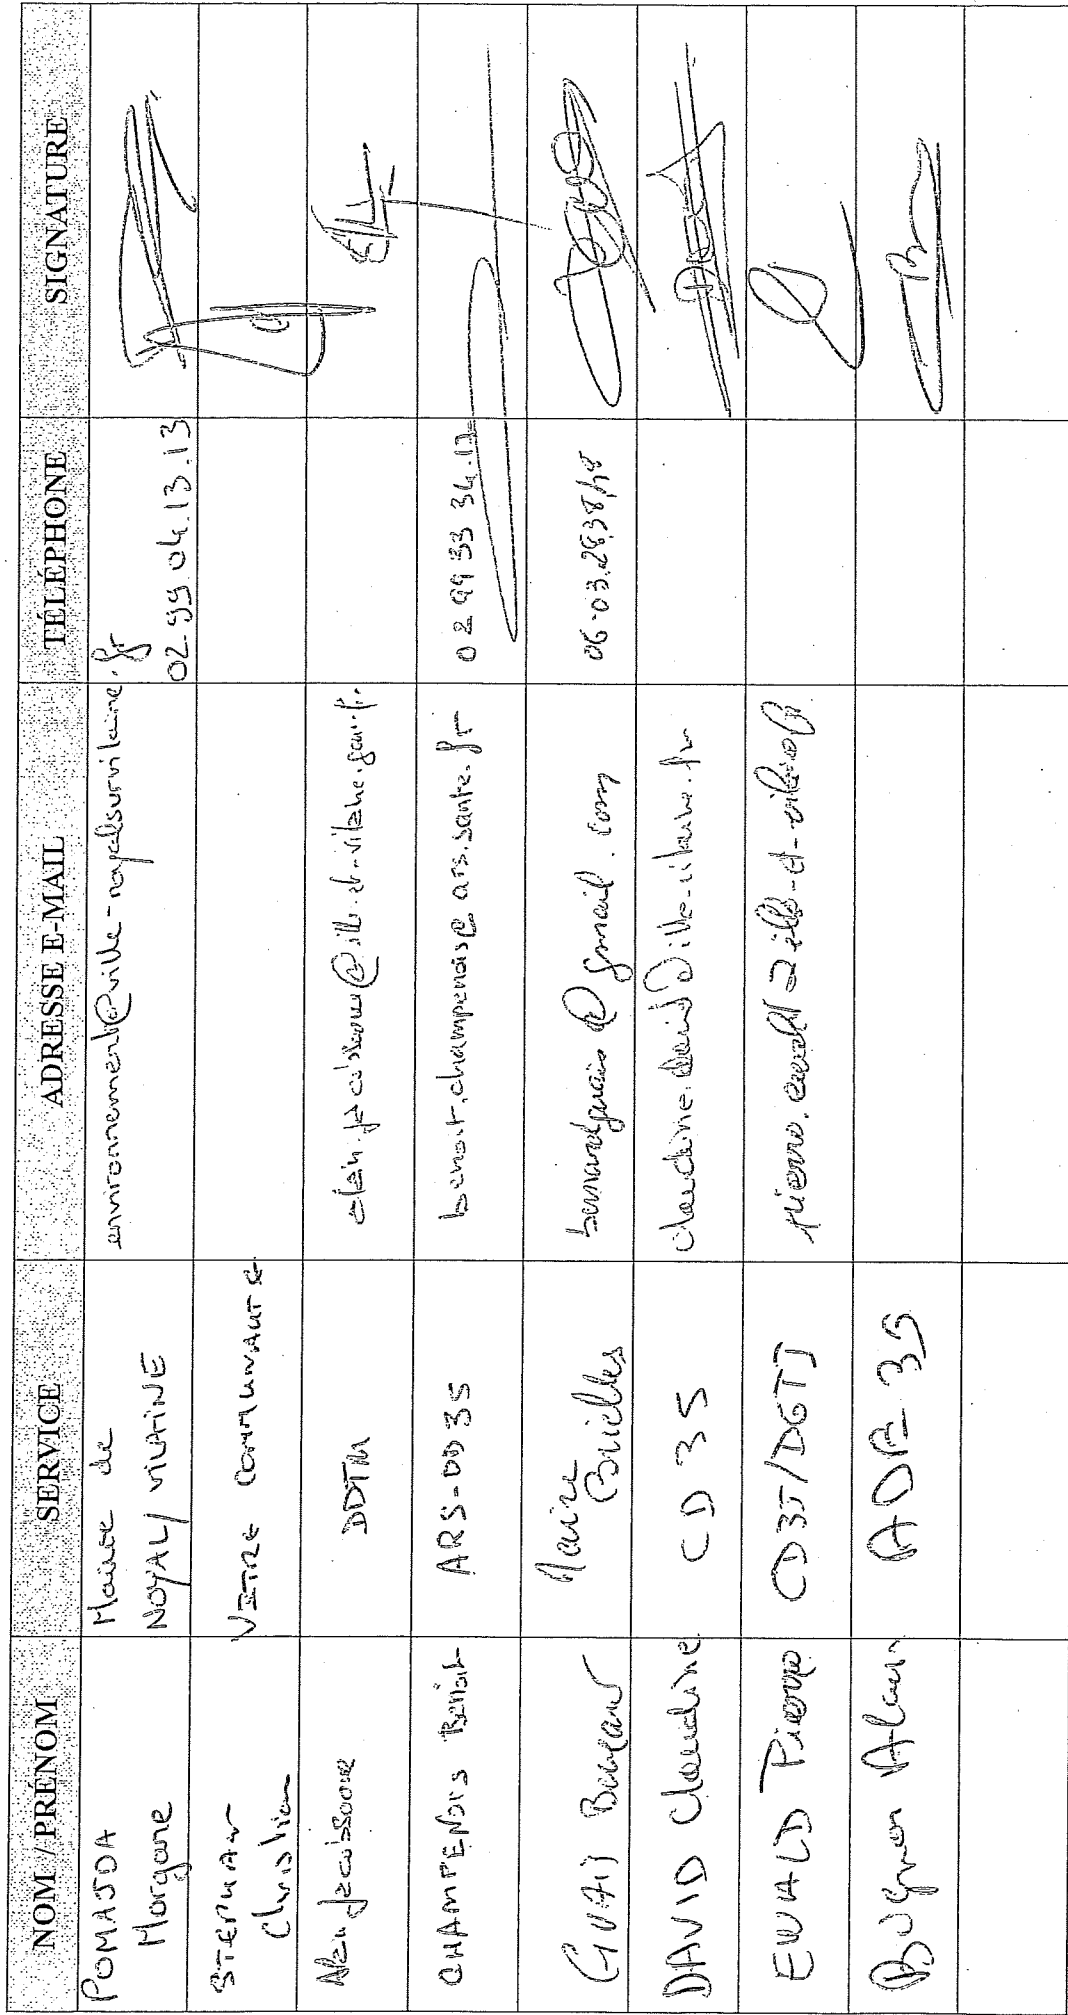 NOM / PRÉNOM SERVICE ADRESSE E-MAIL TÉLÉPHONE SIGNATURE
POMAJDA Morgane
Mairie de NOYAL / VILAINE
environnement@ville-noyalsurvilaine.fr
02.99.04.13.13
STEPHAN Christian
VITRE COMMUNAUTE
Alain Jacobsoone
DDTM
alain.jacobsoone@ille-et-vilaine.gouv.fr
CHAMPENOIS Benoit
ARS-DD35
benoit.champenois@ars.sante.fr
02 99 33 34.12
Bernard
Mairie
@gmail.com
DAVID Claudine
CD 35
claudine.david@ille-vilaine.fr
EWALD Pierre
CD35/DGTJ
pierre.ewald@ille-et-vilaine.fr
Alain
35